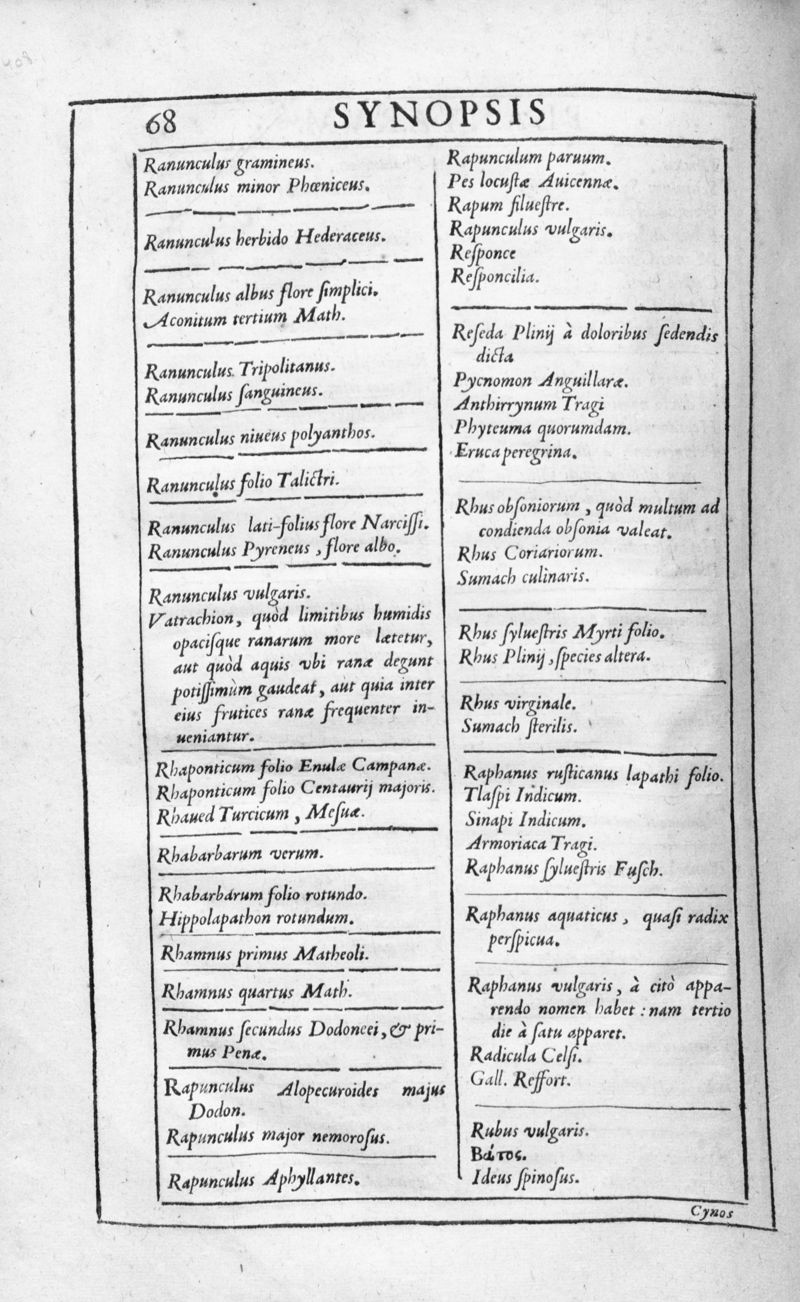 68
SYNOPSIS
Ranunculus gramineus.
Ranunculus minor Phœniceus.
Ranunculus herbido Hederaceus.
Ranunculus albus flore ſimplici.
Aconitum tertium Math.
Ranunculus Tripolitanus.
Ranunculus ſanguineus.
Ranunculus niueus polyanthos.
Ranunculus folio Talictri.
Ranunculus lati-folius flore Narciſſi.
Ranunculus Pyreneus, flore albo.
Ranunculus vulgaris.
Vatrachion, quòd limitibus humidis
opaciſque ranarum more lætetur,
aut quòd aquis vbi ranæ degunt
potiſſimùm gaudeat, aut quia inter
eius frutices ranæ frequenter in-
ueniantur.
Rhaponticum folio Enulæ Campanæ.
Rhaponticum folio Centaurij majoris.
Rhaued Turcicum, Meſuæ.
Rhabarbarum verum.
Rhabarbarum folio rotundo.
Hippolapathon rotundum.
Rhamnus primus Matheoli.
Rhamnus quartus Math.
Rhamnus ſecundus Dodoncei, & pri-
mus Penæ.
Rapunculus Alopecuroides majus
Dodon.
Rapunculus major nemoroſus.
Rapunculus Aphyllantes.
Rapunculum paruum.
Pes locuſtæ Auicennæ.
Rapum ſilueſtre.
Rapunculus vulgaris.
Reſponce
Reſponcilia.
Reſeda Plinij à doloribus ſedendis
dicta
Pycnomon Anguillaræ.
Anthirrynum Tragi
Phyteuma quorumdam.
Eruca peregrina.
Rhus obſoniorum, quòd multum ad
condienda obſonia valeat.
Rhus Coriariorum.
Sumach culinaris.
Rhus ſylueſtris Myrti folio.
Rhus Plinij, ſpecies altera.
Rhus virginale.
Sumach ſterilis.
Raphanus ruſticanus lapathi folio.
Tlaſpi Indicum.
Sinapi Indicum.
Armoriaca Tragi.
Raphanus ſylueſtris Fuſch.
Raphanus aquaticus, quaſi radix
perſpicua.
Raphanus vulgaris, à citò appa-
rendo nomen habet : nam tertio
die à ſatu apparet.
Radicula Celſi.
Gall. Reffort.
Rubus vulgaris.
Βάτος.
Ideus ſpinoſus.
Cynos